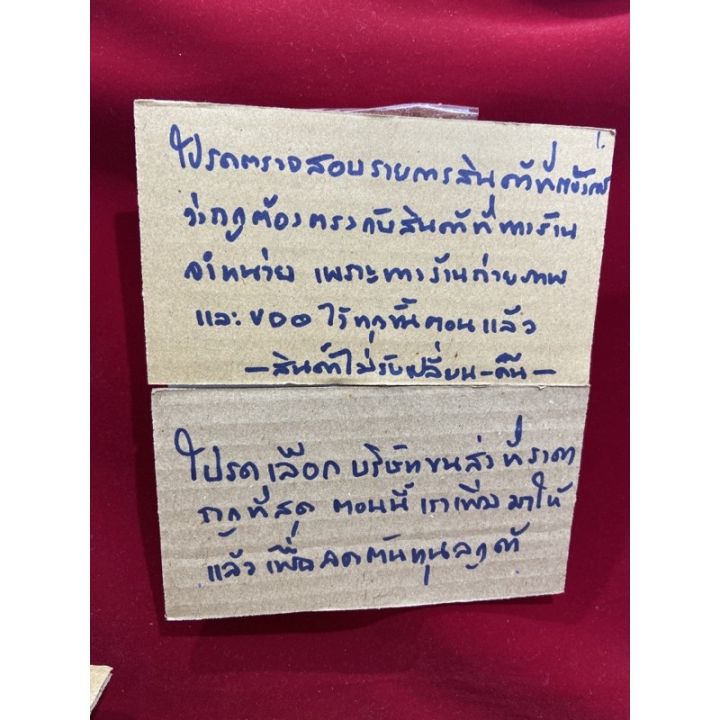 โปรดตรวจสอบรายการสินค้าที่ต้องการ
ว่าถูกต้องตรงกับสินค้าที่ทางร้าน
จำหน่าย เพราะทางร้านถ่ายภาพ
และ VDO ไว้ทุกขั้นตอนแล้ว
-สินค้าไม่รับเปลี่ยน-คืน-
โปรดเลือกบริษัทขนส่งที่ราคา
ถูกที่สุด ตอนนี้ เราเพิ่มมาให้
แล้ว เพื่อลดต้นทุนลูกค้า